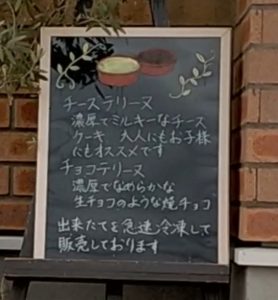 チーズテリーヌ
濃厚でミルキーなチーズ
ケーキ 大人にもお子様
にもオススメです
チョコテリーヌ
濃厚でなめらかな
生チョコのような焼チョコ
出来たてを急速冷凍して
販売しております